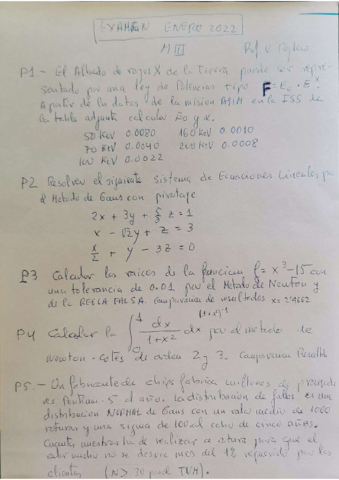 EXAMEN ENERO 2022
M II Prof. V.
P1 - El Albedo de rayos X de la Tierra puede ser repre-
sentado por una ley de Potencias tipo F = E₀ · E^x.
A partir de los datos de la misión ASIM en la ISS de
la tabla adjunta calcular E₀ y x.
50 KeV 0.0080 160 KeV 0.0010
70 KeV 0.0040 200 KeV 0.0008
100 KeV 0.0022
P2 Resolver el siguiente sistema de Ecuaciones Lineales por
el Metodo de Gaus con pivotaje
2x + 3y + 5/3 z = 1
x - √2y + z = 3
x/2 + y - 3z = 0
P3 Calcular las raices de la funcion f = x³ - 15 con
una tolerancia de 0.01 por el Metodo de Newton y
de la REGLA FALSA. Comparación de resultados
P4 Calcular la ∫ dx/(1+x²) dx por el metodo de
Newton-Cotes de orden 2 y 3. Comparacion
P5. - Un fabricante de chips fabrica millones de
de Pentium-5 al año. La distribución de fallos es una
distribución NORMAL de Gaus con un valor medio de 1000
roturas y una sigma de 100 al cabo de cinco años.
Cuantas muestras ha de realizar a rotura para que el
valor medio no se desvie mas del 1% requerido por los
clientes (N > 30 para TVM).